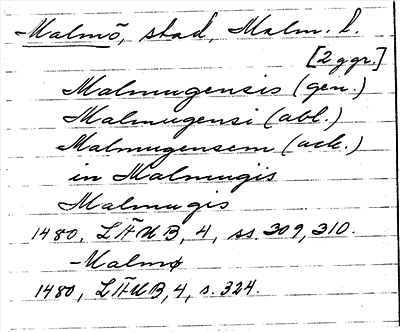 Malmö, stad, Malm. l.
[2 ggr.]
Malmugensis (gen.)
Malmugensi (abl.)
Malmugensem (ack.)
in Malmugis
Malmugis
1480, LÄUB, 4, ss. 309, 310.
-Malmø
1480, LÄUB, 4, s. 324.